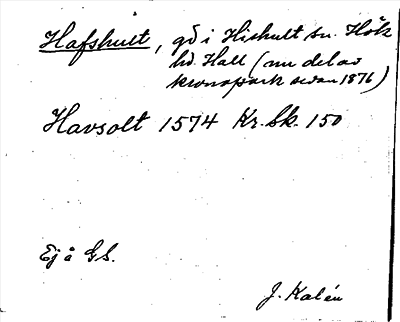 Hafshult, gd i Hishult sn. Höks
hd. Hall (nu del av
kronopark sedan 1876)
Havsolt 1574 Kr. bk. 150
Ej å G.S.
J. Kalén